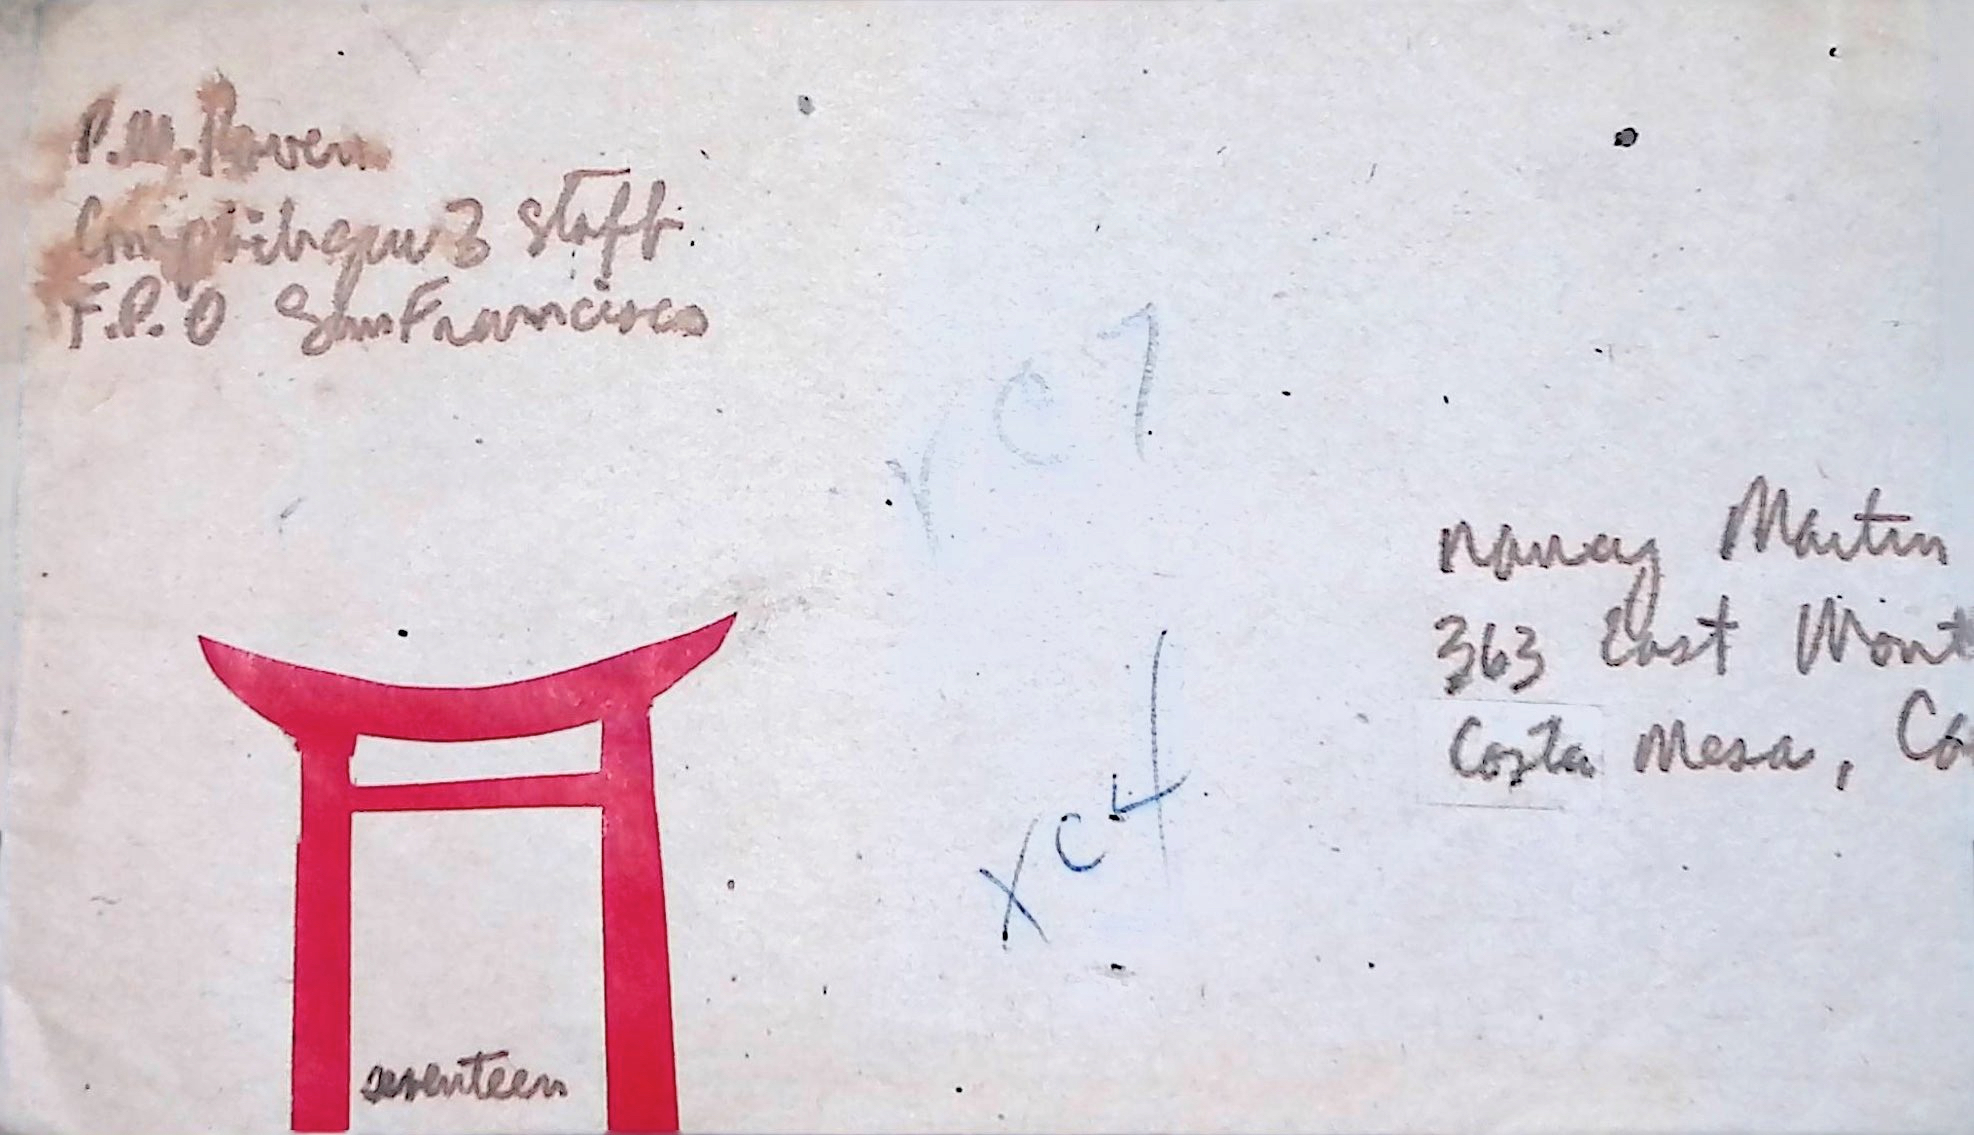 P.M. Raven
Comphibgru 3 Staff
F.P.O San Francisco
C
Nancy Martin
363 East
Costa Mesa, Ca
x c 4
seventeen